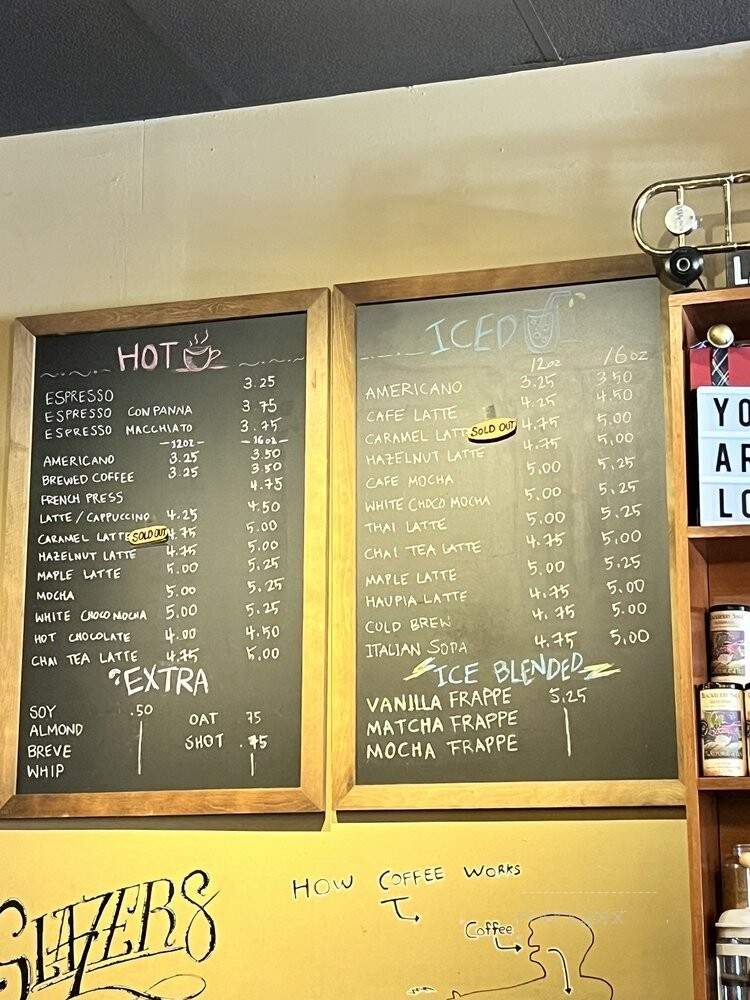 HOT
ESPRESSO 3.25
ESPRESSO CON PANNA 3.75
ESPRESSO MACCHIATO 3.75
-12oz- -16oz-
AMERICANO 3.25 3.50
BREWED COFFEE 3.25 3.50
FRENCH PRESS 4.75
LATTE/CAPPUCCINO 4.25 4.50
CARAMEL LATTE SOLD OUT 4.75 5.00
HAZELNUT LATTE 4.75 5.00
MAPLE LATTE 5.00 5.25
MOCHA 5.00 5.25
WHITE CHOCO MOCHA 5.00 5.25
HOT CHOCOLATE 4.00 4.50
CHAI TEA LATTE 4.75 5.00
EXTRA
SOY .50 OAT 75
ALMOND
BREVE SHOT .75
WHIP
ICED
12oz 16oz
AMERICANO 3.25 3.50
CAFÉ LATTE 4.25 4.50
CARAMEL LATT SOLD OUT 4.75 5.00
HAZELNUT LATTE 4.75 5.00
CAFE MOCHA 5.00 5.25
WHITE CHOCO MOCHA 5.00 5.25
THAI LATTE 5.00 5.25
CHAI TEA LATTE 4.75 5.00
MAPLE LATTE 5.00 5.25
HAUPIA LATTE 4.75 5.00
COLD BREW 4.75 5.00
ITALIAN SODA 4.75 5.00
ICE BLENDED
VANILLA FRAPPE 5.25
MATCHA FRAPPE
MOCHA FRAPPE
L
YO
AR
LO
GLAZERS
HOW COFFEE WORKS
Coffee